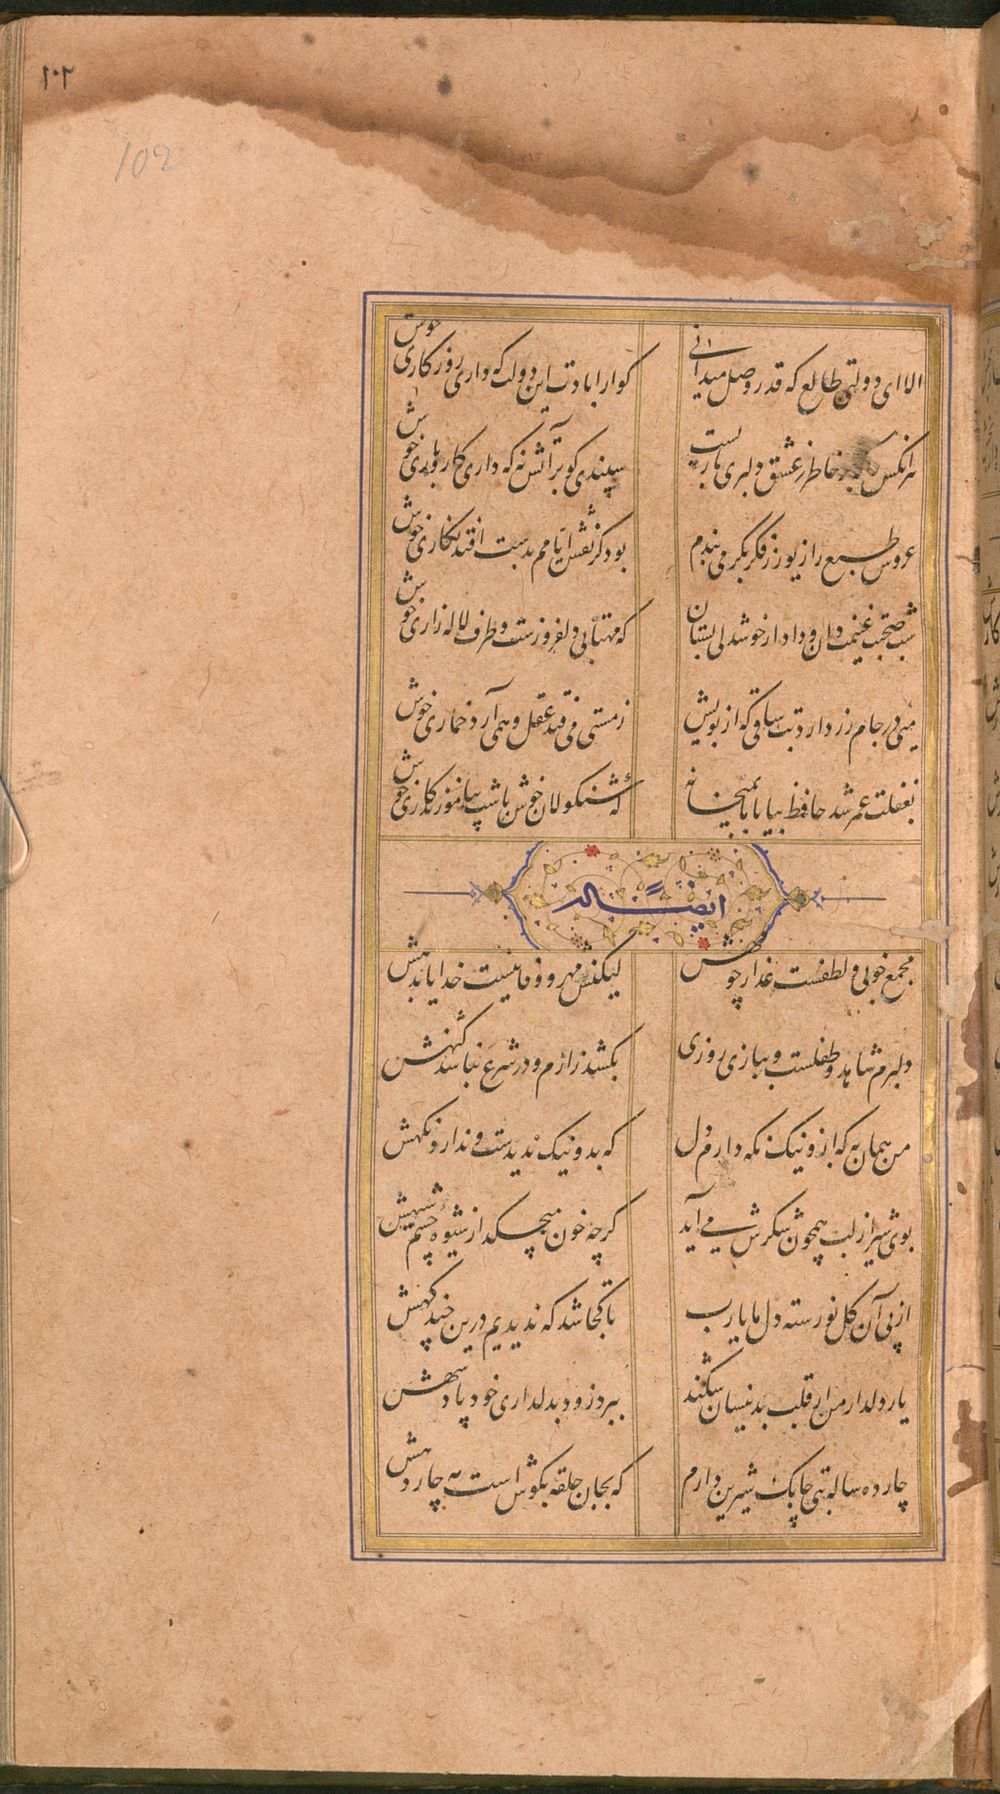 ١٠٢
102
الا ای دولتی طالع که قدر وصل میدانی کوارا بادت این دولت که داری روزکاری خوش
هر انکس خاطر ز عشق دلبری باریست سپندی کو بر آتش نه که داری کار و باری خوش
عروس طبع را زیور ز فکر بکر می بندم بود کز نقش ایامم بدست افتد نکاری خوش
شب صحبت غنیمت دان و داد از خوشدلی بستان که مهتابی دلفروزست و طرف لاله زاری خوش
میی در جام زر دارد بت ساقی که از بویش ز مستی می فتد عقل و همی آرد خماری خوش
بغفلت عمر شد حافظ بیا با ما بمیخانه که شنکولان خوش باشت بیاموزند کاری خوش
ایضاً له
مجمع خوبی و لطفست عذار چو مهش لیکنش مهر و وفا نیست خدایا بدهش
دلبرم شاهد و طفلست و ببازی روزی بکشد زارم و در شرع نباشد کنهش
من همان به که ازو نیک نکه دارم دل که بد و نیک ندیدست و ندارد نکهش
بوی شیر از لب همچون شکرش می آید کرچه خون میچکد از شیوۀ چشم سیهش
از پی آن کل نورسته دل ما یارب تا کجا شد که ندیدیم درین چند کهش
یار دلدار من ار قلب بدینسان شکند ببرد زود بدلداری خود پادشهش
چارده ساله بتی چابک شیرین دارم که بجان حلقه بکوش است مه چاردهش